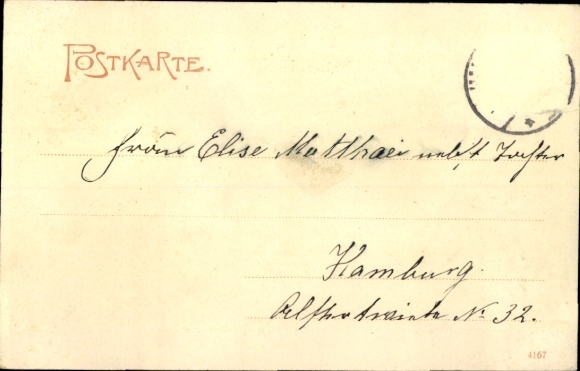 POSTKARTE.
Frau Elise Matthaei nebst Tochter
Hamburg.
No 32.
4167